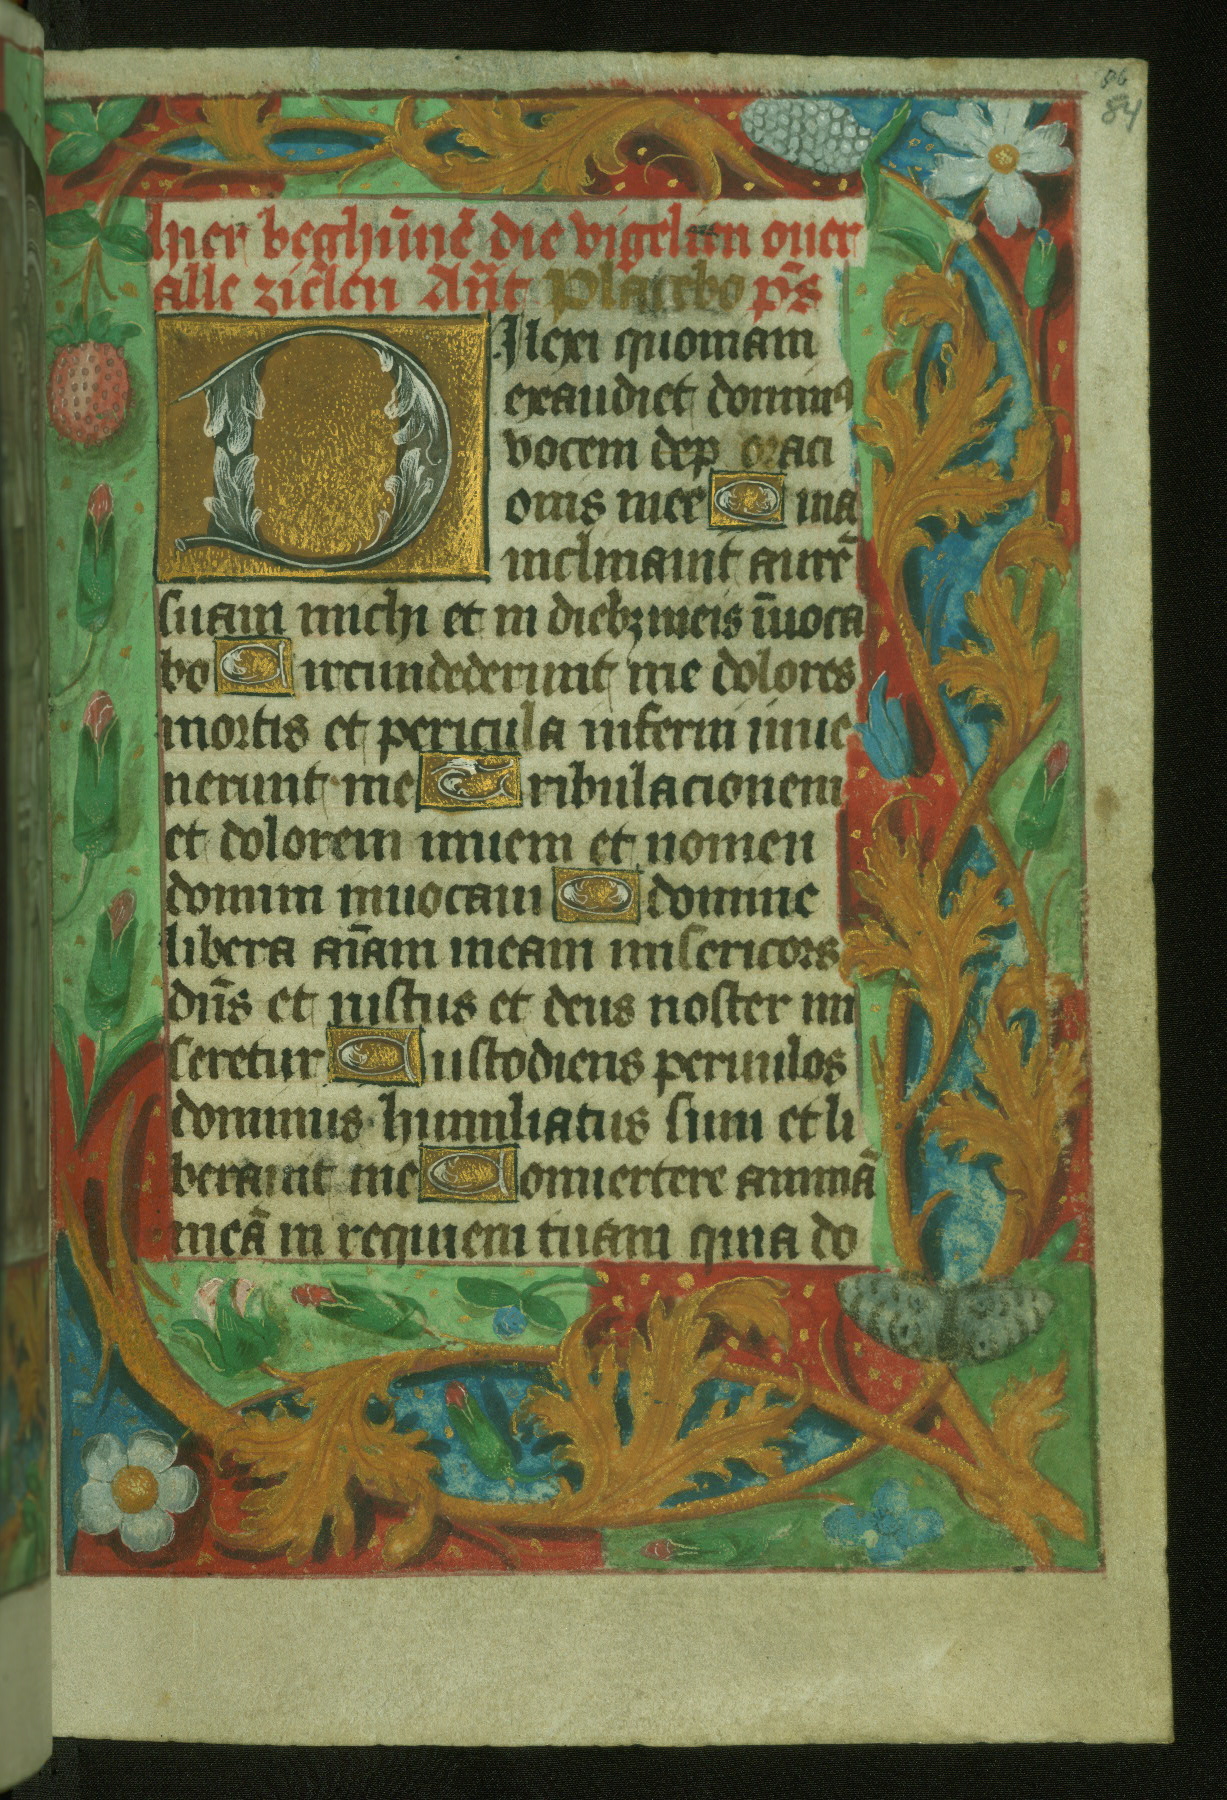 86
84
hier beghīnē die vigelien ouer
alle zielen Ān̄t Placebo p̄s
DIlexi quoniam
exaudiet dominꝰ
vocem dep oraci
onis mee Q ma
inclinauit aurē
suam michi et in diebꝫ meis īuoca
bo Circundederunt me dolores
mortis et pericula inferni inue
nerunt me Tribulacionem
et dolorem inuem et nomen
domini inuocaui O domine
libera aīam meam misericors
dn̄s et iustus et deus noster mi
seretur Custodiens peruulos
dominus humiliatus sum et li
berauit me Conuertere animā
meā in requiem tuam quia do